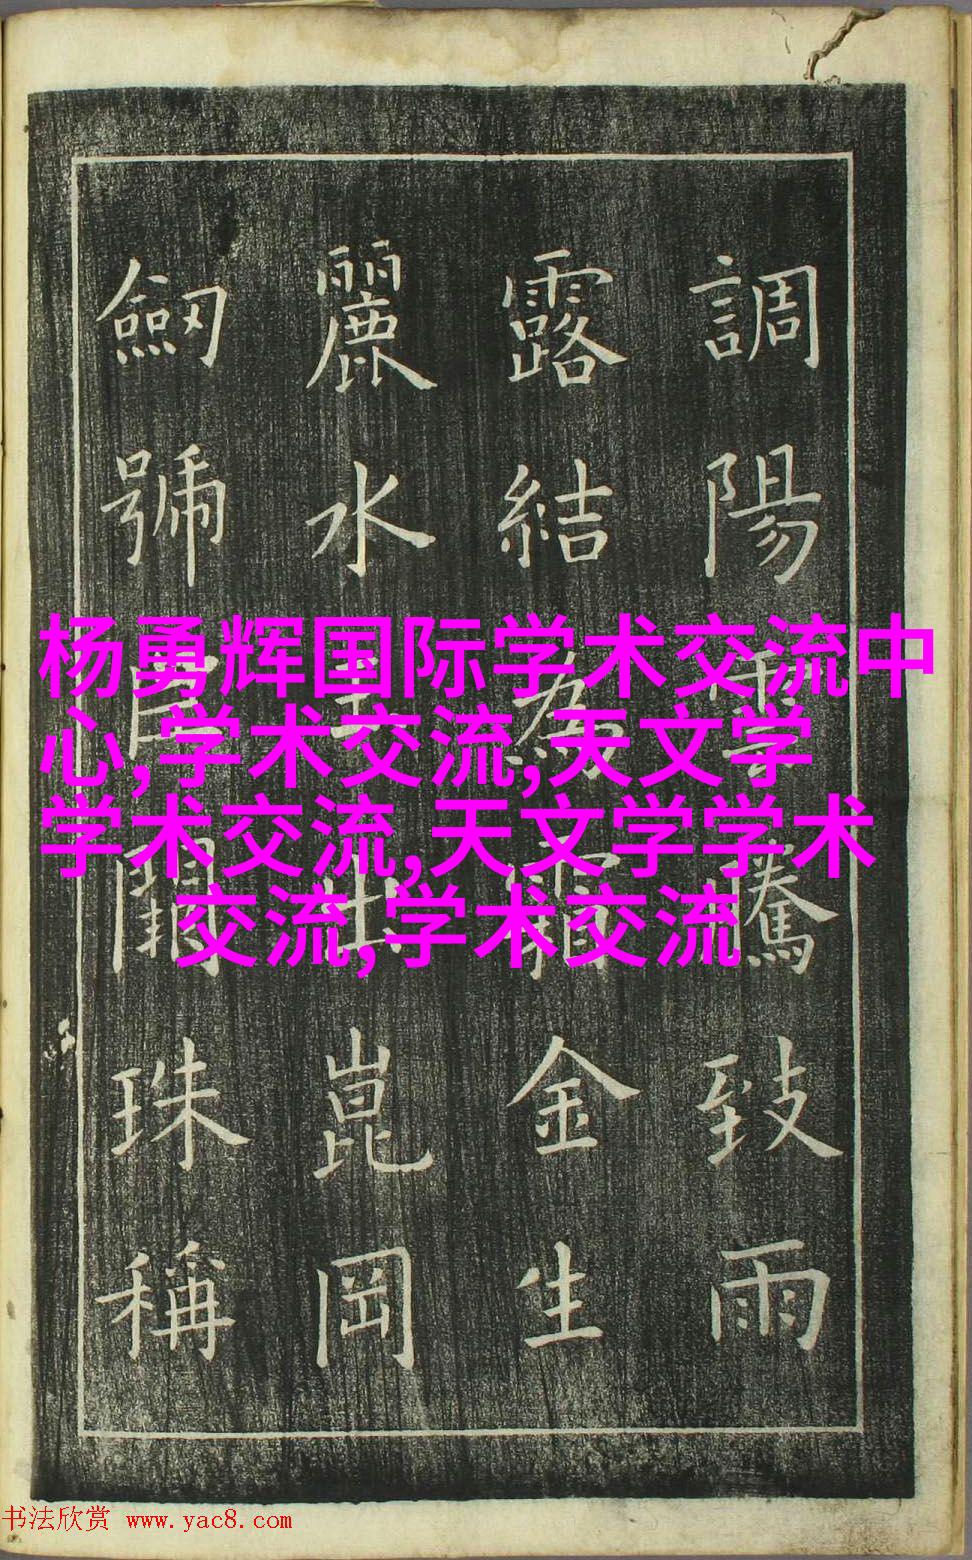 調陽雲騰致雨
露結為霜金生
麗水玉出崑岡
劒號巨闕珠稱
杨勇辉国际学术交流中
心,学术交流,天文学
学术交流,天文学学术
交流,学术交流
书法欣赏 www.yac8.com